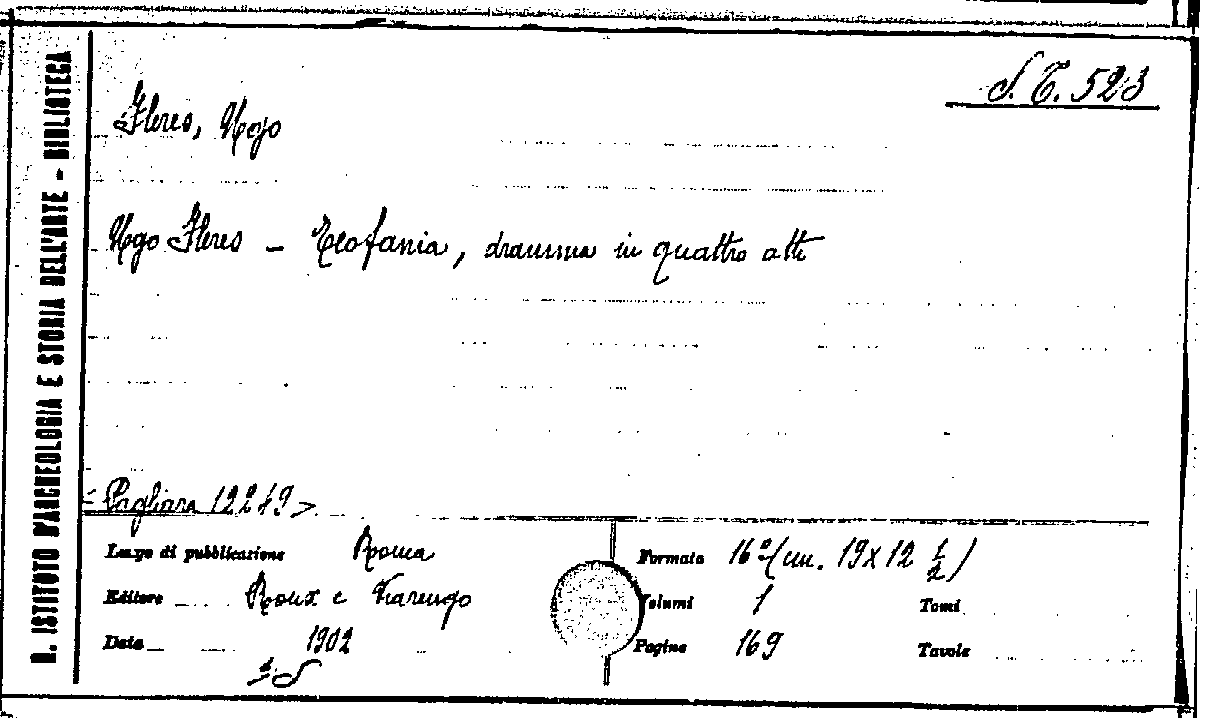 R. ISTITUTO D'ARCHEOLOGIA E STORIA DELL'ARTE - BIBLIOTECA
S. T. 523
Fleres, Ugo
Ugo Fleres - Teofania, dramma in quattro atti
< Pagliara 12249 >
Luogo di pubblicazione Roma
Editore Roux e Viarengo
Data 1902
Formato 16° (cm. 19 x 12 1/2)
Volumi 1 Tomi
Pagine 169 Tavole